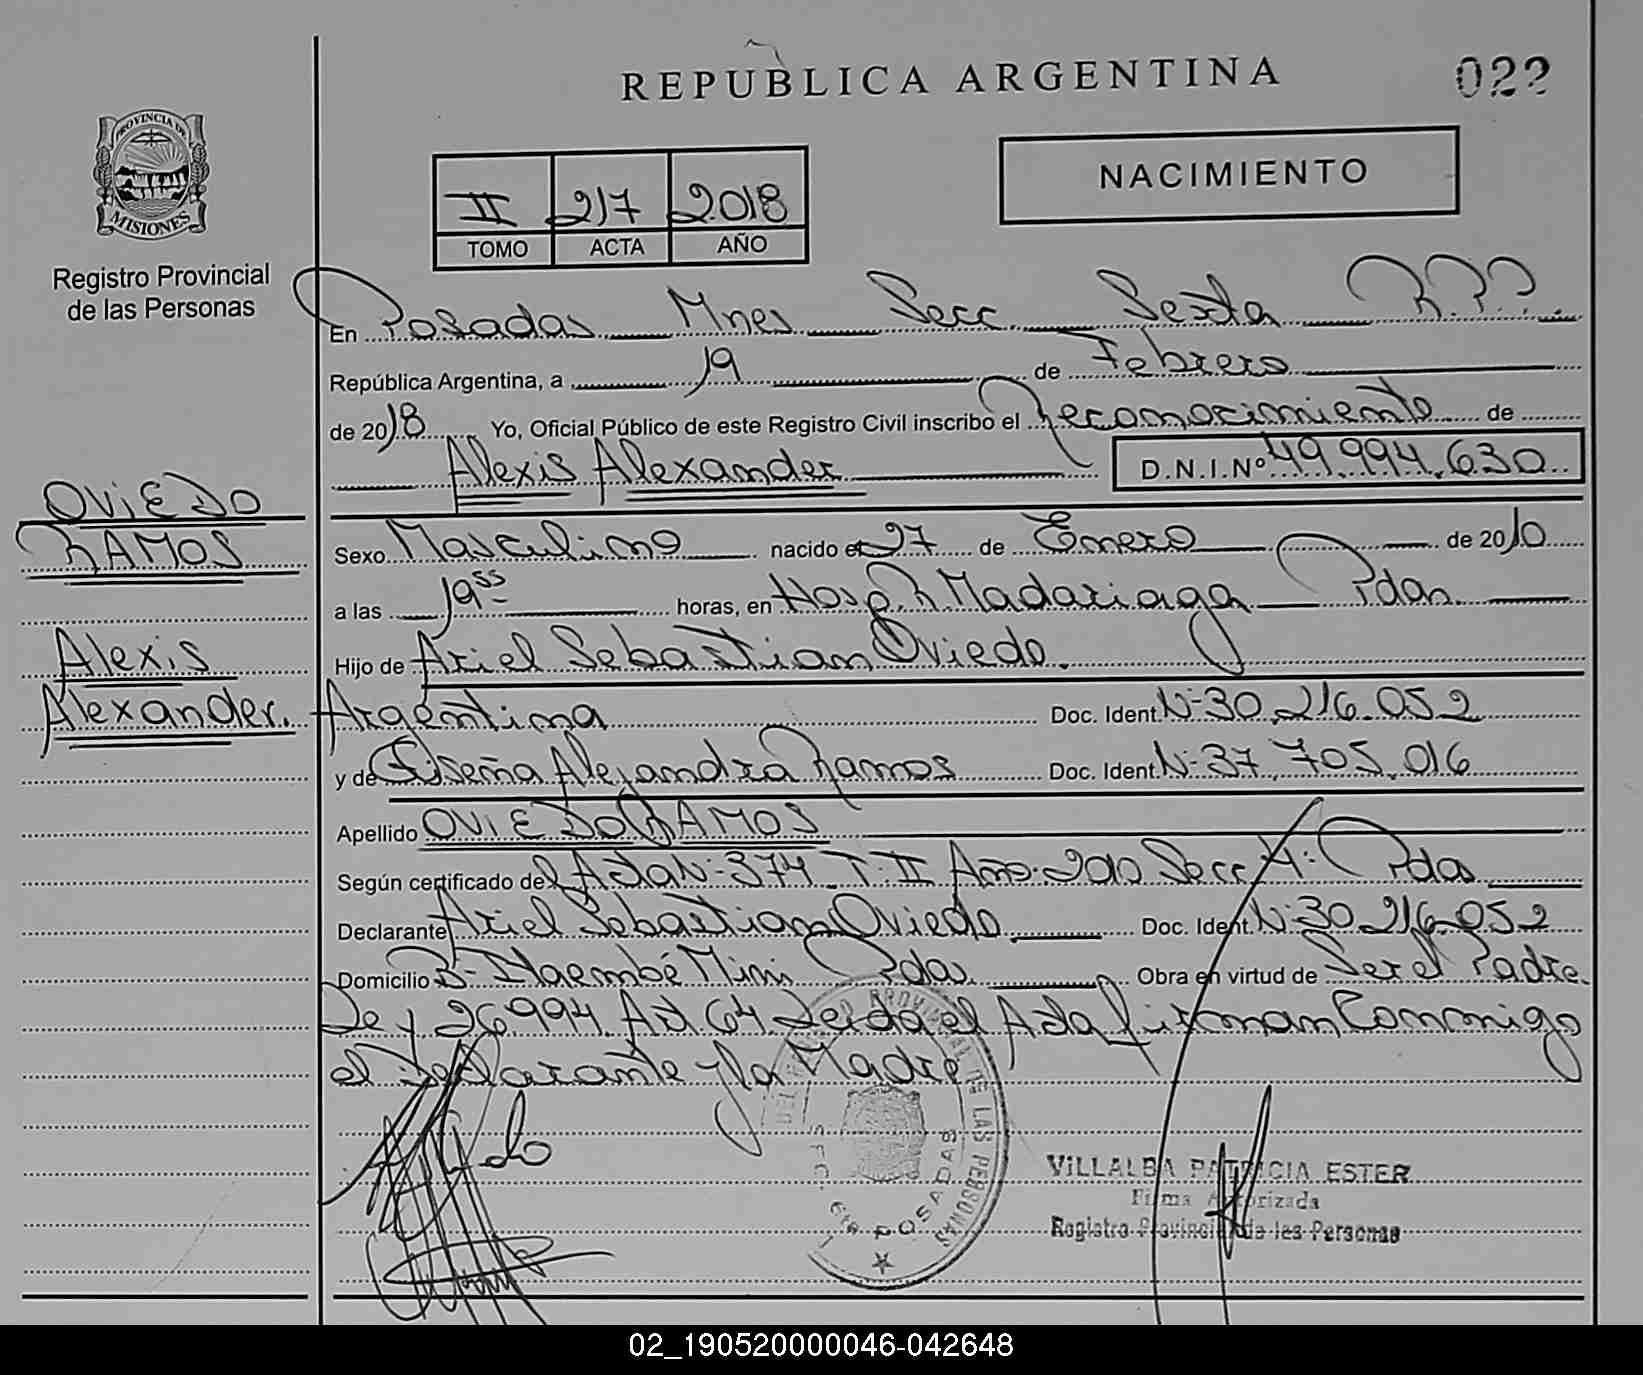 REPUBLICA ARGENTINA
022
PROVINCIA DE
MISIONES
Registro Provincial
de las Personas
II 217 2018
TOMO ACTA AÑO
NACIMIENTO
En Posadas Mnes Secc. Sexta R.P.P.
República Argentina, a 19 de Febrero
de 2018 Yo, Oficial Público de este Registro Civil inscribo el Reconocimiento de
Alexis Alexander D.N.I.Nº 49.994.630
OVIEDO
RAMOS
Alexis
Alexander.
Sexo Masculino nacido el 27 de Enero de 2010
a las 19⁵⁵ horas, en Hosp. R Madariaga Pdas.
Hijo de Ariel Sebastian Oviedo.
Argentina Doc. Ident. Nº 30.216.052
y de Alejandra Ramos Doc. Ident. Nº 37.705.016
Apellido OVIEDO RAMOS
Según certificado del Acta Nº 374 T. II Año 2010 Secc 4ª Pdas
Declarante Ariel Sebastian Oviedo Doc. Ident. Nº 30.216.052
Domicilio Bº Itaembé Mini Pdas. Obra en virtud de Ser el Padre.
Ley 26994 Art 64 Leida el Acta firman Conmigo
el Declarante y la Madre
REGISTRO PROVINCIAL DE LAS PERSONAS
SECC. 6ta POSADAS
VILLALBA PATRICIA ESTER
Firma Autorizada
Registro Provincial de las Personas
02_190520000046-042648